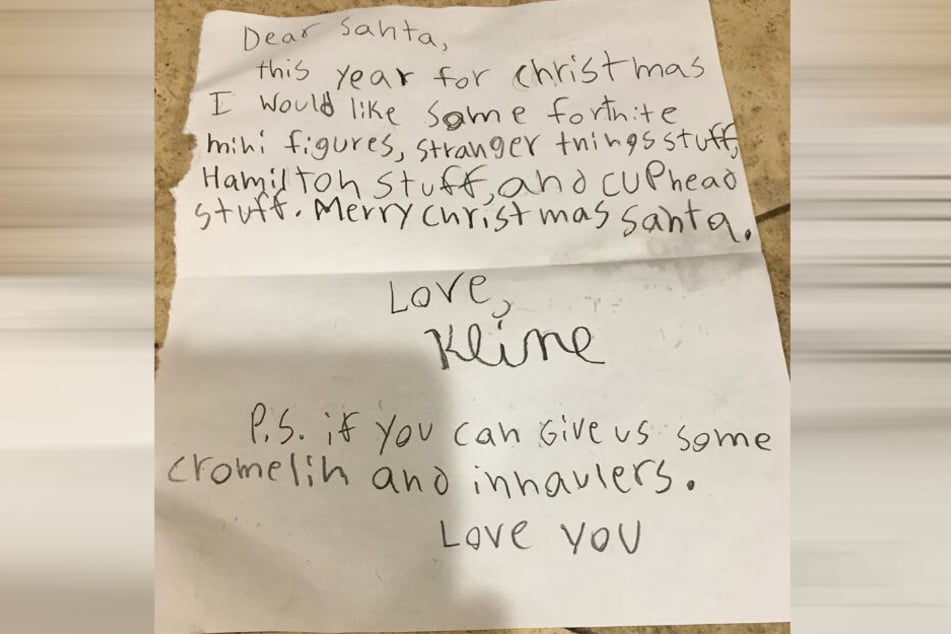 Dear Santa,
this year for christmas
I would like some fortnite
mini figures, stranger things stuff,
Hamilton stuff, and cuphead
stuff. Merry christmas santa.
Love,
Kline
P.S. if you can Give us some
cromelin and inhaulers.
Love you